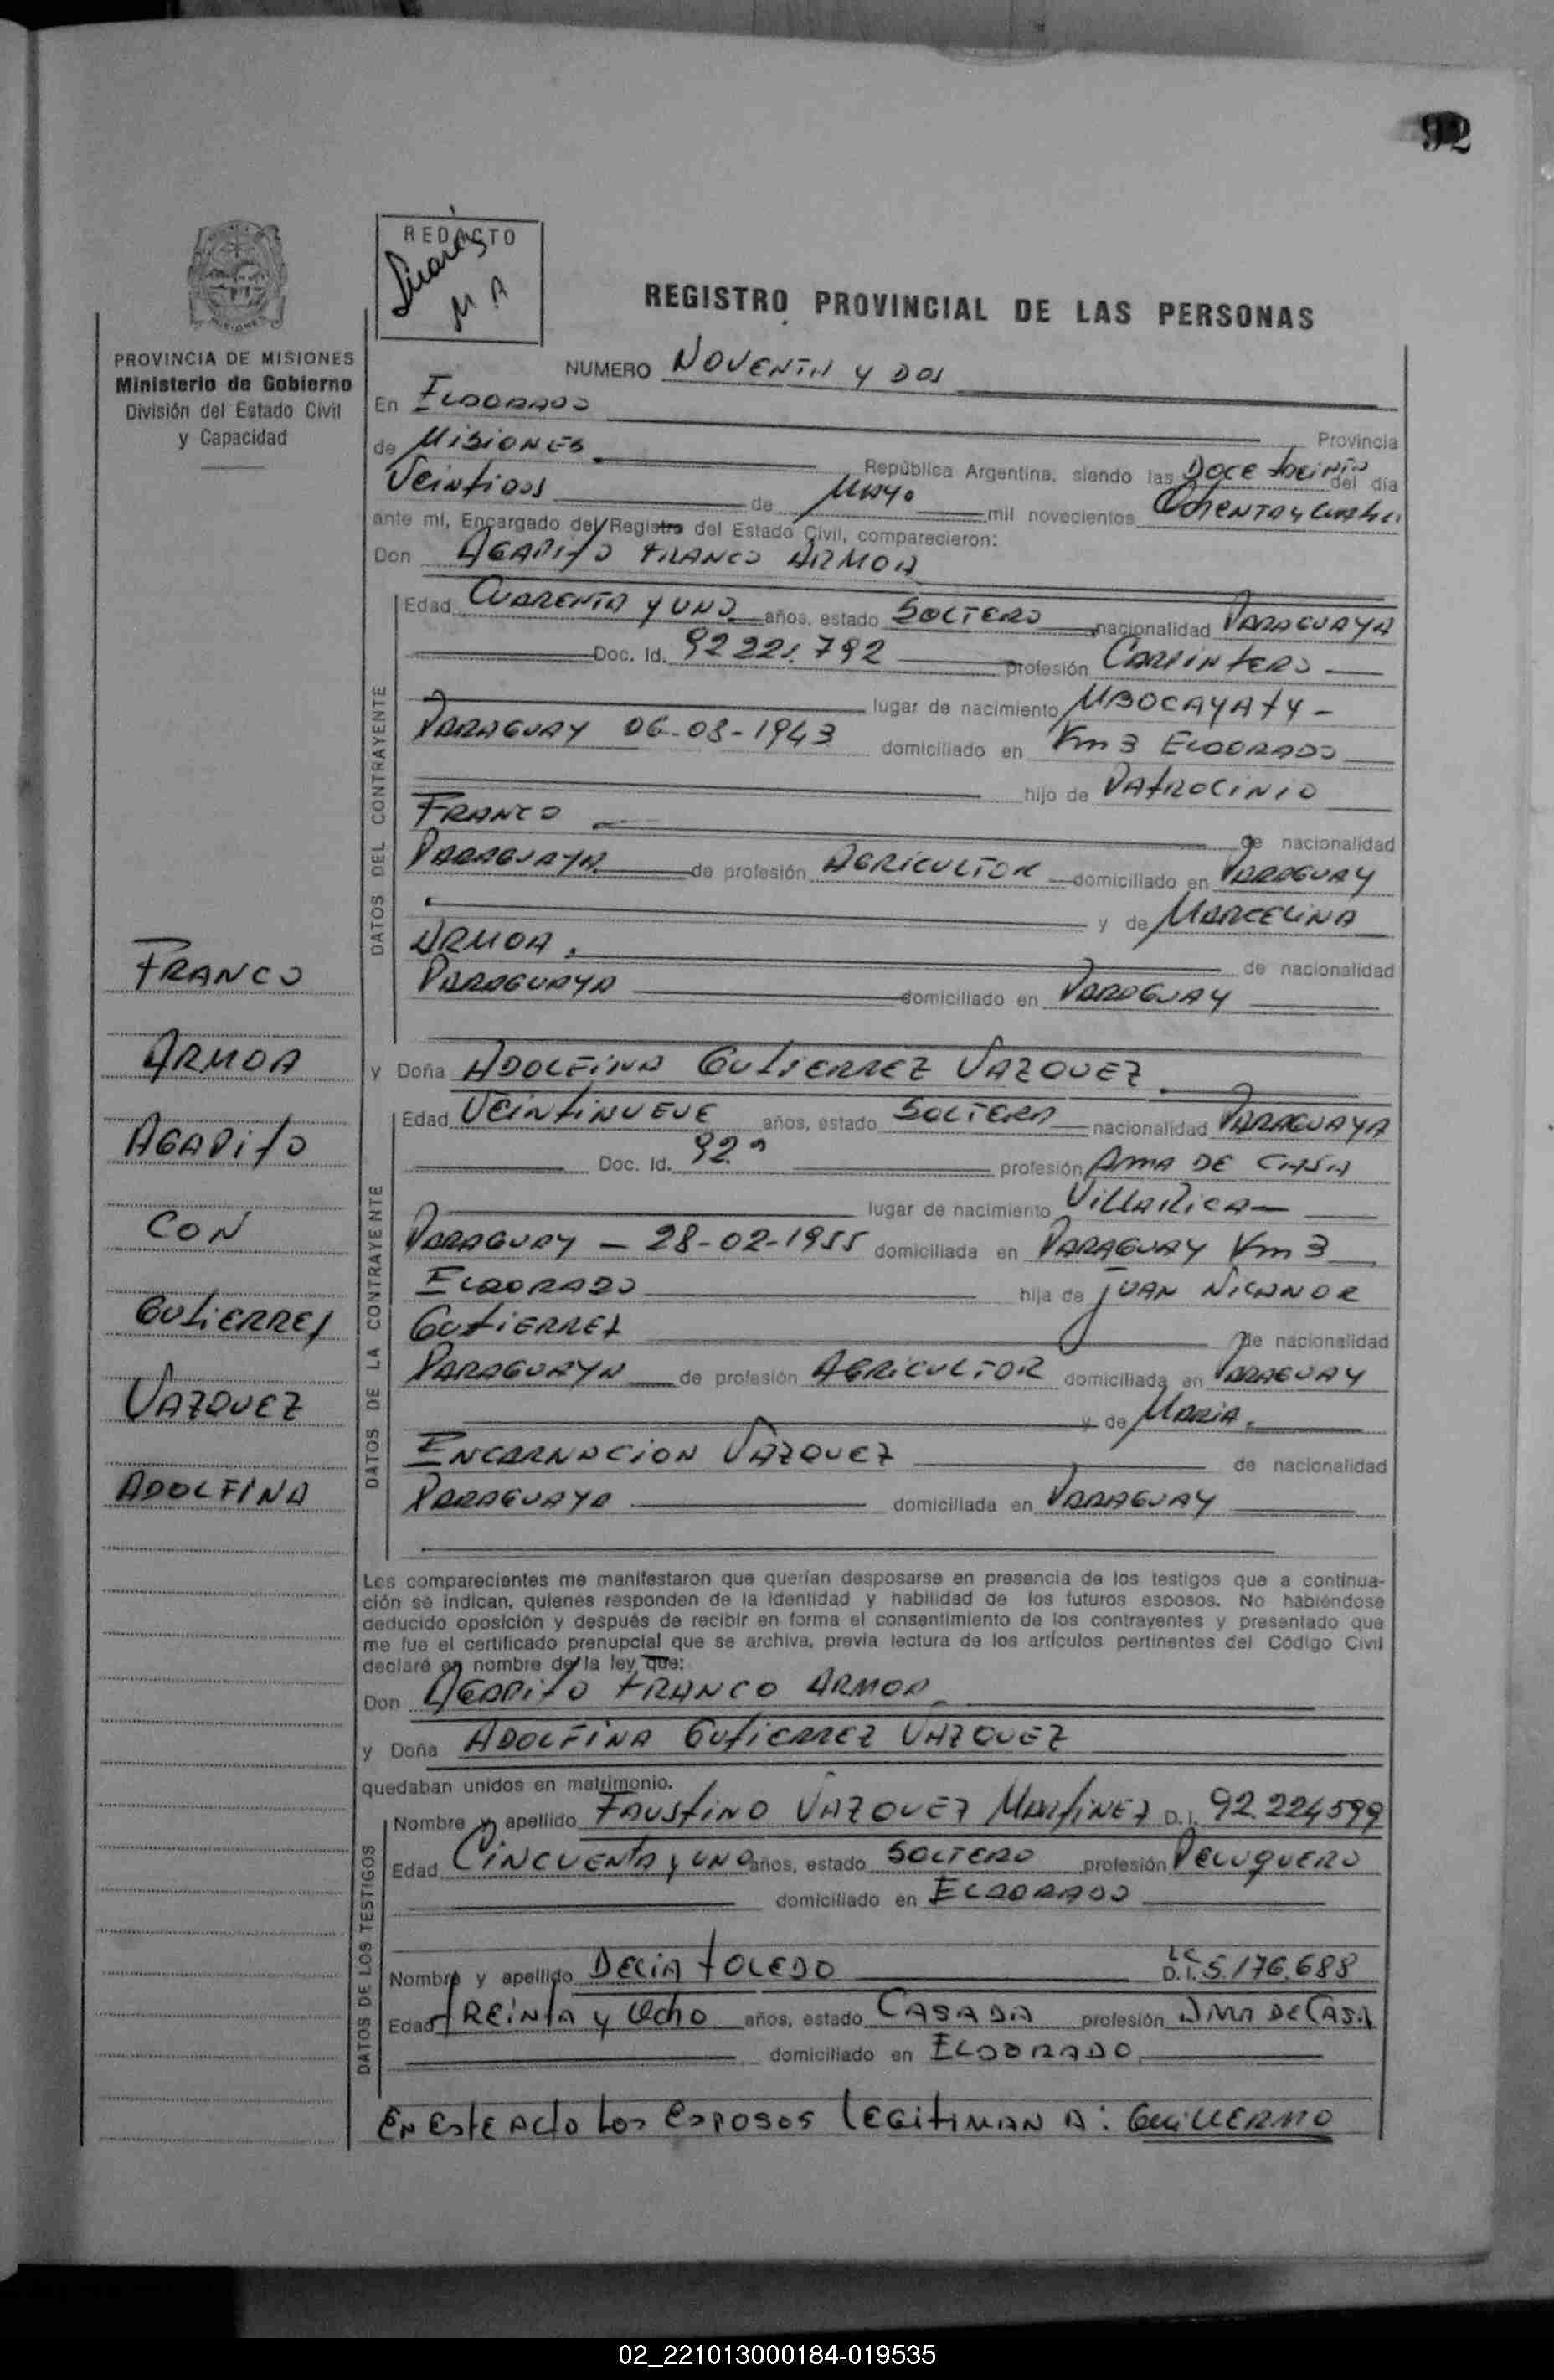 92
REDACTO
Suarez
M A
REGISTRO PROVINCIAL DE LAS PERSONAS
PROVINCIA DE MISIONES
Ministerio de Gobierno
División del Estado Civil
y Capacidad
NUMERO NOVENTA Y DOS
En ELDORADO Provincia
de MISIONES República Argentina, siendo las DOCE del día
VEINTIDOS de MAYO mil novecientos OCHENTA Y CUATRO
ante mí, Encargado del Registro del Estado Civil, comparecieron:
Don AGAPITO FRANCO ARMOA
DATOS DEL CONTRAYENTE
Edad CUARENTA Y UNO años, estado SOLTERO nacionalidad PARAGUAYA
Doc. Id. 92 221.792 profesión CARPINTERO
lugar de nacimiento MBOCAYATY -
PARAGUAY 06-08-1943 domiciliado en Km 3 ELDORADO
hijo de PATROCINIO
FRANCO de nacionalidad
PARAGUAYA de profesión AGRICULTOR domiciliado en PARAGUAY
y de MARCELINA
ARMOA. de nacionalidad
PARAGUAYA domiciliado en PARAGUAY
y Doña ADOLFINA GUTIERREZ VAZQUEZ.
DATOS DE LA CONTRAYENTE
Edad VEINTINUEVE años, estado SOLTERA nacionalidad PARAGUAYA
Doc. Id. 92. profesión AMA DE CASA
lugar de nacimiento VILLARICA
PARAGUAY - 28-02-1955 domiciliada en PARAGUAY Km 3
ELDORADO hija de JUAN NICANOR
GUTIERREZ de nacionalidad
PARAGUAYA de profesión AGRICULTOR domiciliada en PARAGUAY
y de MARIA.
ENCARNACION VAZQUEZ de nacionalidad
PARAGUAYA domiciliada en PARAGUAY
FRANCO
ARMOA
AGAPITO
CON
GUTIERREZ
VAZQUEZ
ADOLFINA
Los comparecientes me manifestaron que querían desposarse en presencia de los testigos que a continua-
ción se indican, quienes responden de la identidad y habilidad de los futuros esposos. No habiéndose
deducido oposición y después de recibir en forma el consentimiento de los contrayentes y presentado que
me fue el certificado prenupcial que se archiva, previa lectura de los artículos pertinentes del Código Civil
declaré en nombre de la ley que:
Don AGAPITO FRANCO ARMOA
y Doña ADOLFINA GUTIERREZ VAZQUEZ
quedaban unidos en matrimonio.
DATOS DE LOS TESTIGOS
Nombre y apellido FAUSTINO VAZQUEZ MARTINEZ D.I. 92.224599
Edad CINCUENTA y UNO años, estado SOLTERO profesión PELUQUERO
domiciliado en ELDORADO
Nombre y apellido DELIA TOLEDO LC D.I. 5.176.688
Edad TREINTA y Ocho años, estado CASADA profesión AMA DE CASA
domiciliado en ELDORADO
EN ESTE ACTO LOS ESPOSOS LEGITIMAN A: GUILLERMO
02_221013000184-019535